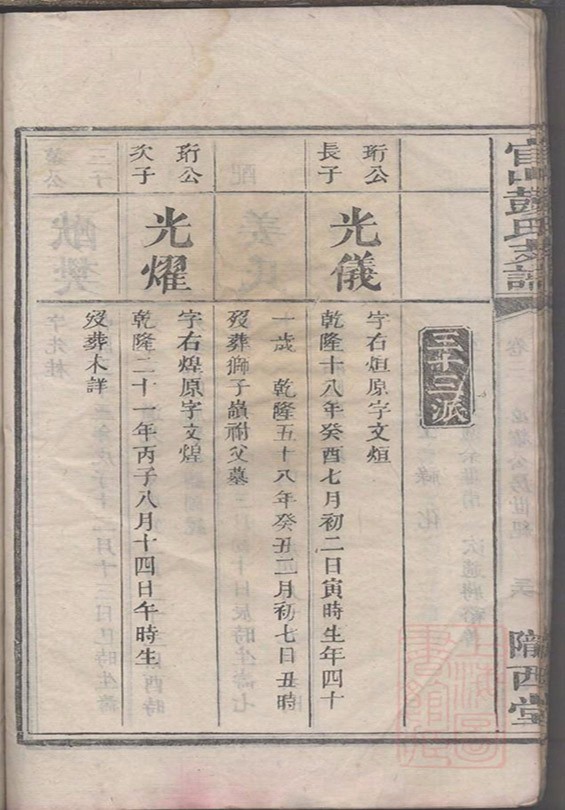 官山彭氏支譜
卷
隴西堂
三十三派
珩公
長子
光儀
字右烜原字文烜
乾隆十八年癸酉七月初二日寅時生年四十
一歲 乾隆五十八年癸丑二月初七日丑時
歿葬獅子嶺祔父墓
珩公
次子
光燿
字右煌原字文煌
乾隆二十一年丙子八月十四日午時生
歿葬未詳